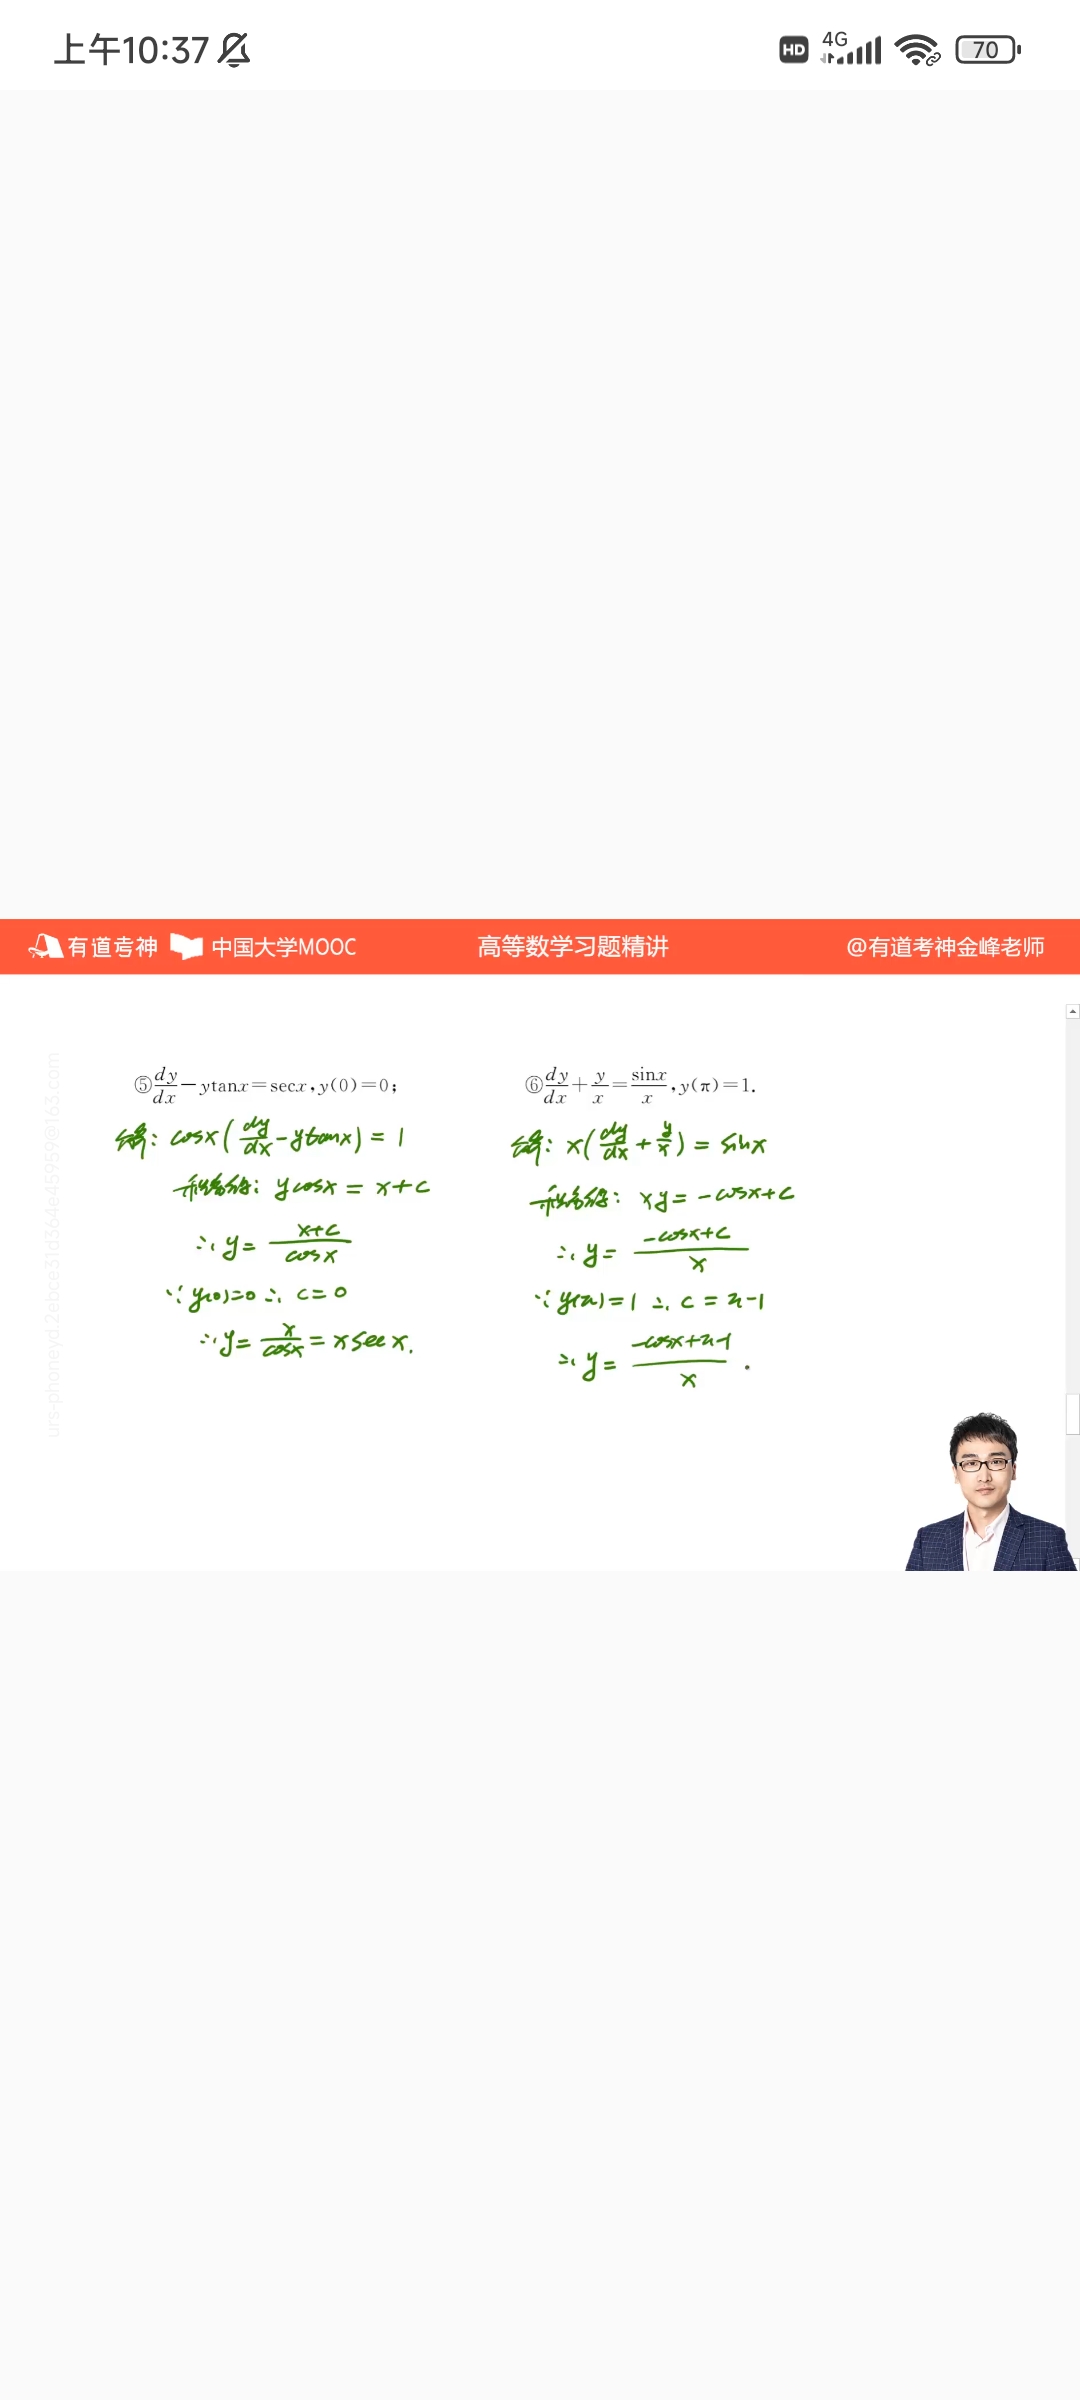 上午10:37 HD 4G 70
有道考神 中国大学MOOC 高等数学习题精讲 @有道考神金峰老师
urs-phoneyd.2ebce31d364e45959@163.com
⑤dy/dx−ytanx=secx,y(0)=0;
解: cosx(dy/dx-ytanx)=1
两边积分得: ycosx=x+c
∴y=(x+c)/cosx
∵y(0)=0∴c=0
∴y=x/cosx=xsecx.
⑥dy/dx+y/x=sinx/x,y(π)=1.
解: x(dy/dx+y/x)=sinx
两边积分得: xy=-cosx+c
∴y=(-cosx+c)/x
∵y(π)=1∴c=π-1
∴y=(-cosx+π-1)/x.